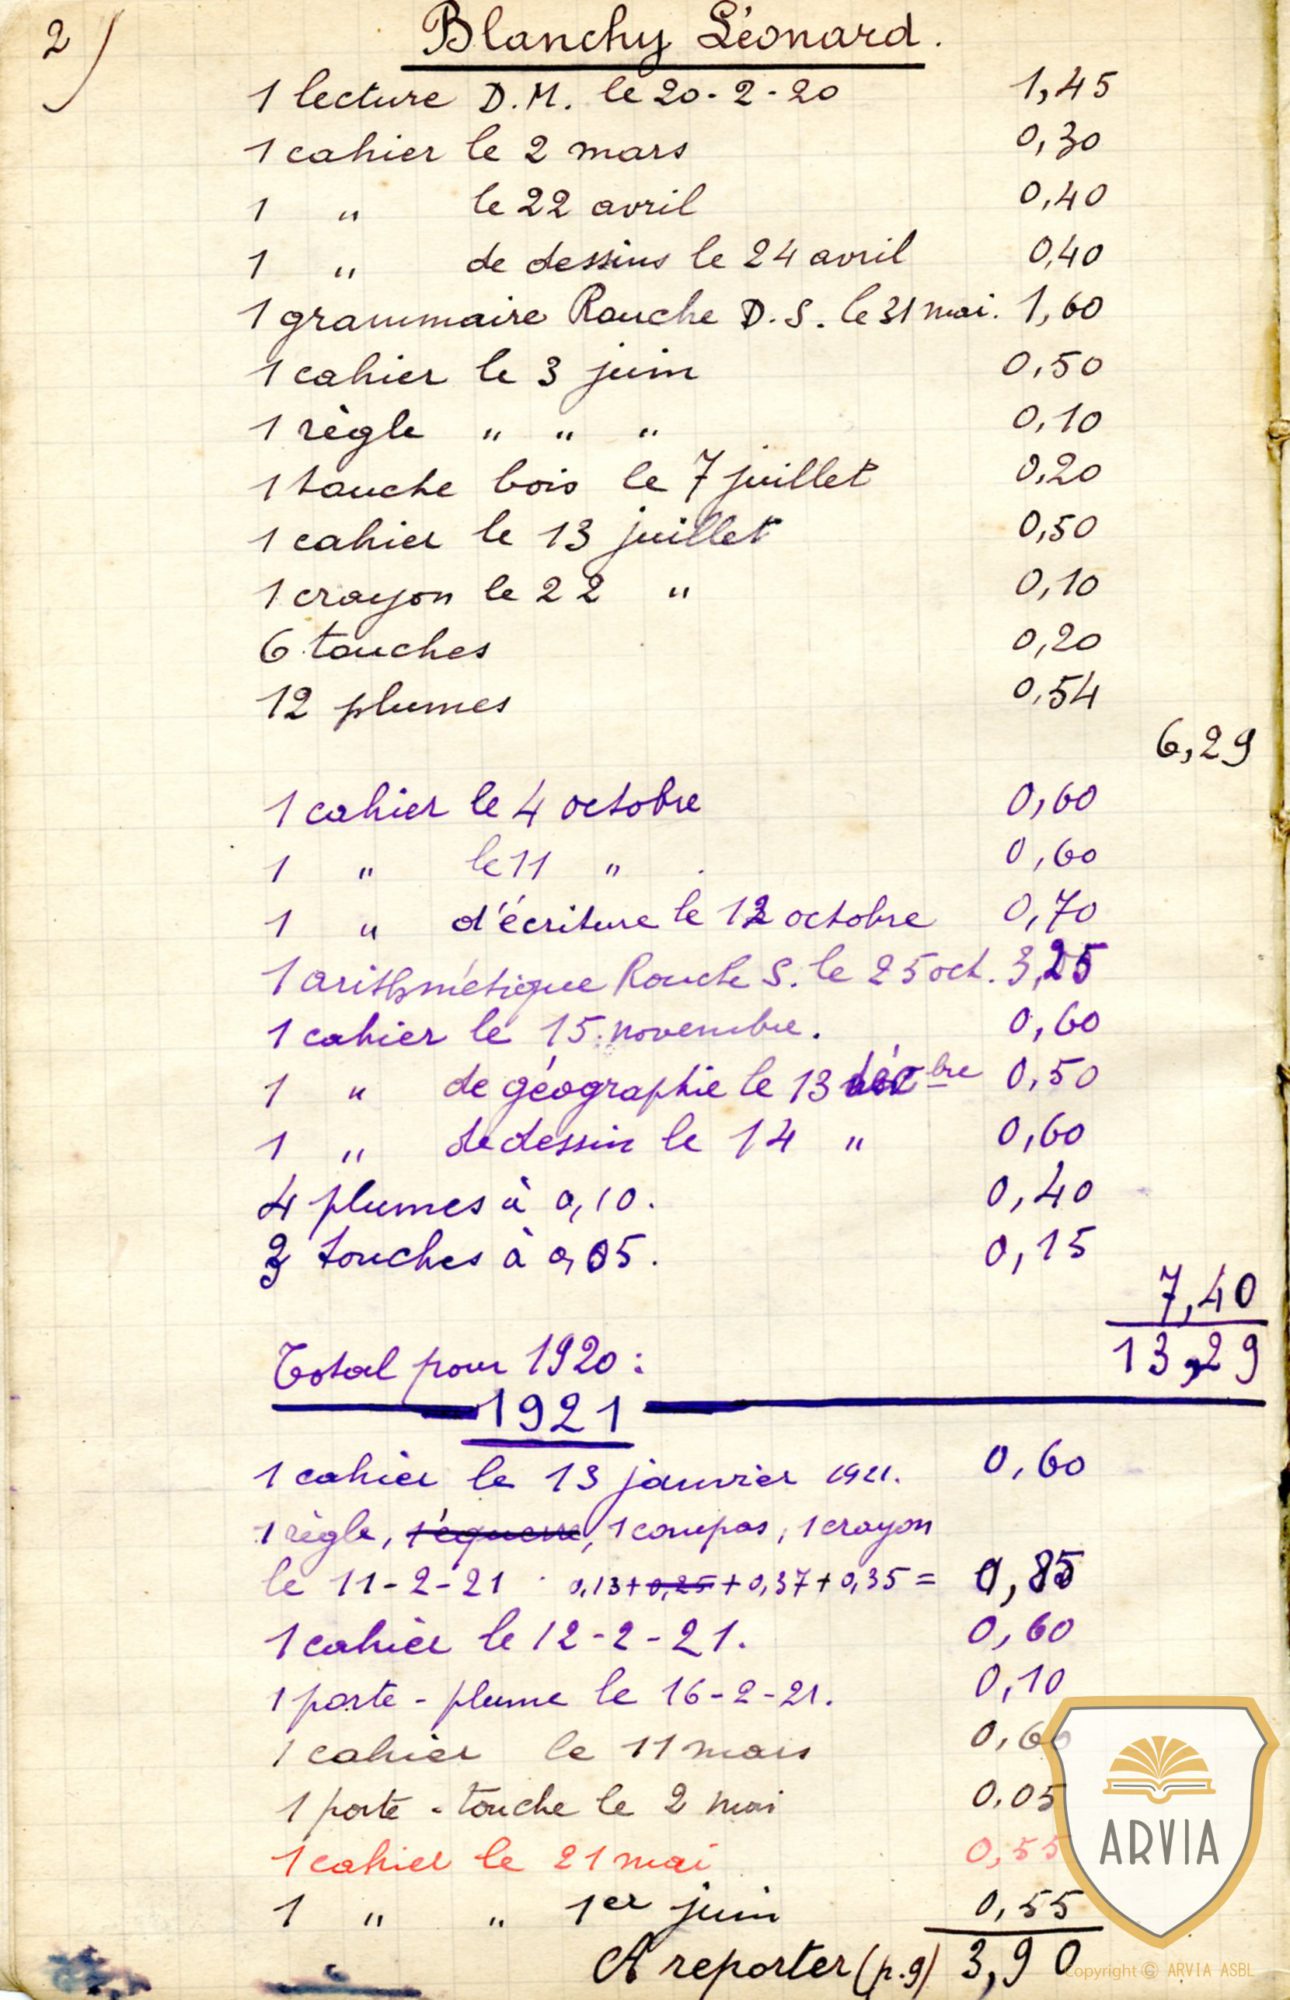 2)
Blanchy Léonard.
1 lecture D.M. le 20-2-20 1,45
1 cahier le 2 mars 0,30
1 " le 22 avril 0,40
1 " de dessins le 24 avril 0,40
1 grammaire Rouche D.S. le 31 mai. 1,60
1 cahier le 3 juin 0,50
1 règle " " " 0,10
1 touche bois le 7 juillet 0,20
1 cahier le 13 juillet 0,50
1 crayon le 22 " 0,10
6 touches 0,20
12 plumes 0,54
6,29
1 cahier le 4 octobre 0,60
1 " le 11 " 0,60
1 " d'écriture le 12 octobre 0,70
1 arithmétique Rouche S. le 25 oct. 3,25
1 cahier le 15 novembre. 0,60
1 " de géographie le 13 décbre 0,50
1 " de dessin le 14 " 0,60
4 plumes à 0,10. 0,40
3 touches à 0,05. 0,15
7,40
Total pour 1920: 13,29
1921
1 cahier le 13 janvier 1921. 0,60
1 règle, 1 équerre, 1 compas, 1 crayon
le 11-2-21 0,13+0,25+0,37+0,35= 0,85
1 cahier le 12-2-21. 0,60
1 porte-plume le 16-2-21. 0,10
1 cahier le 11 mars 0,60
1 porte-touche le 2 mai 0,05
1 cahier le 21 mai 0,55
1 " " 1er juin 0,55
A reporter (p.9) 3,90
ARVIA
Copyright © ARVIA ASBL